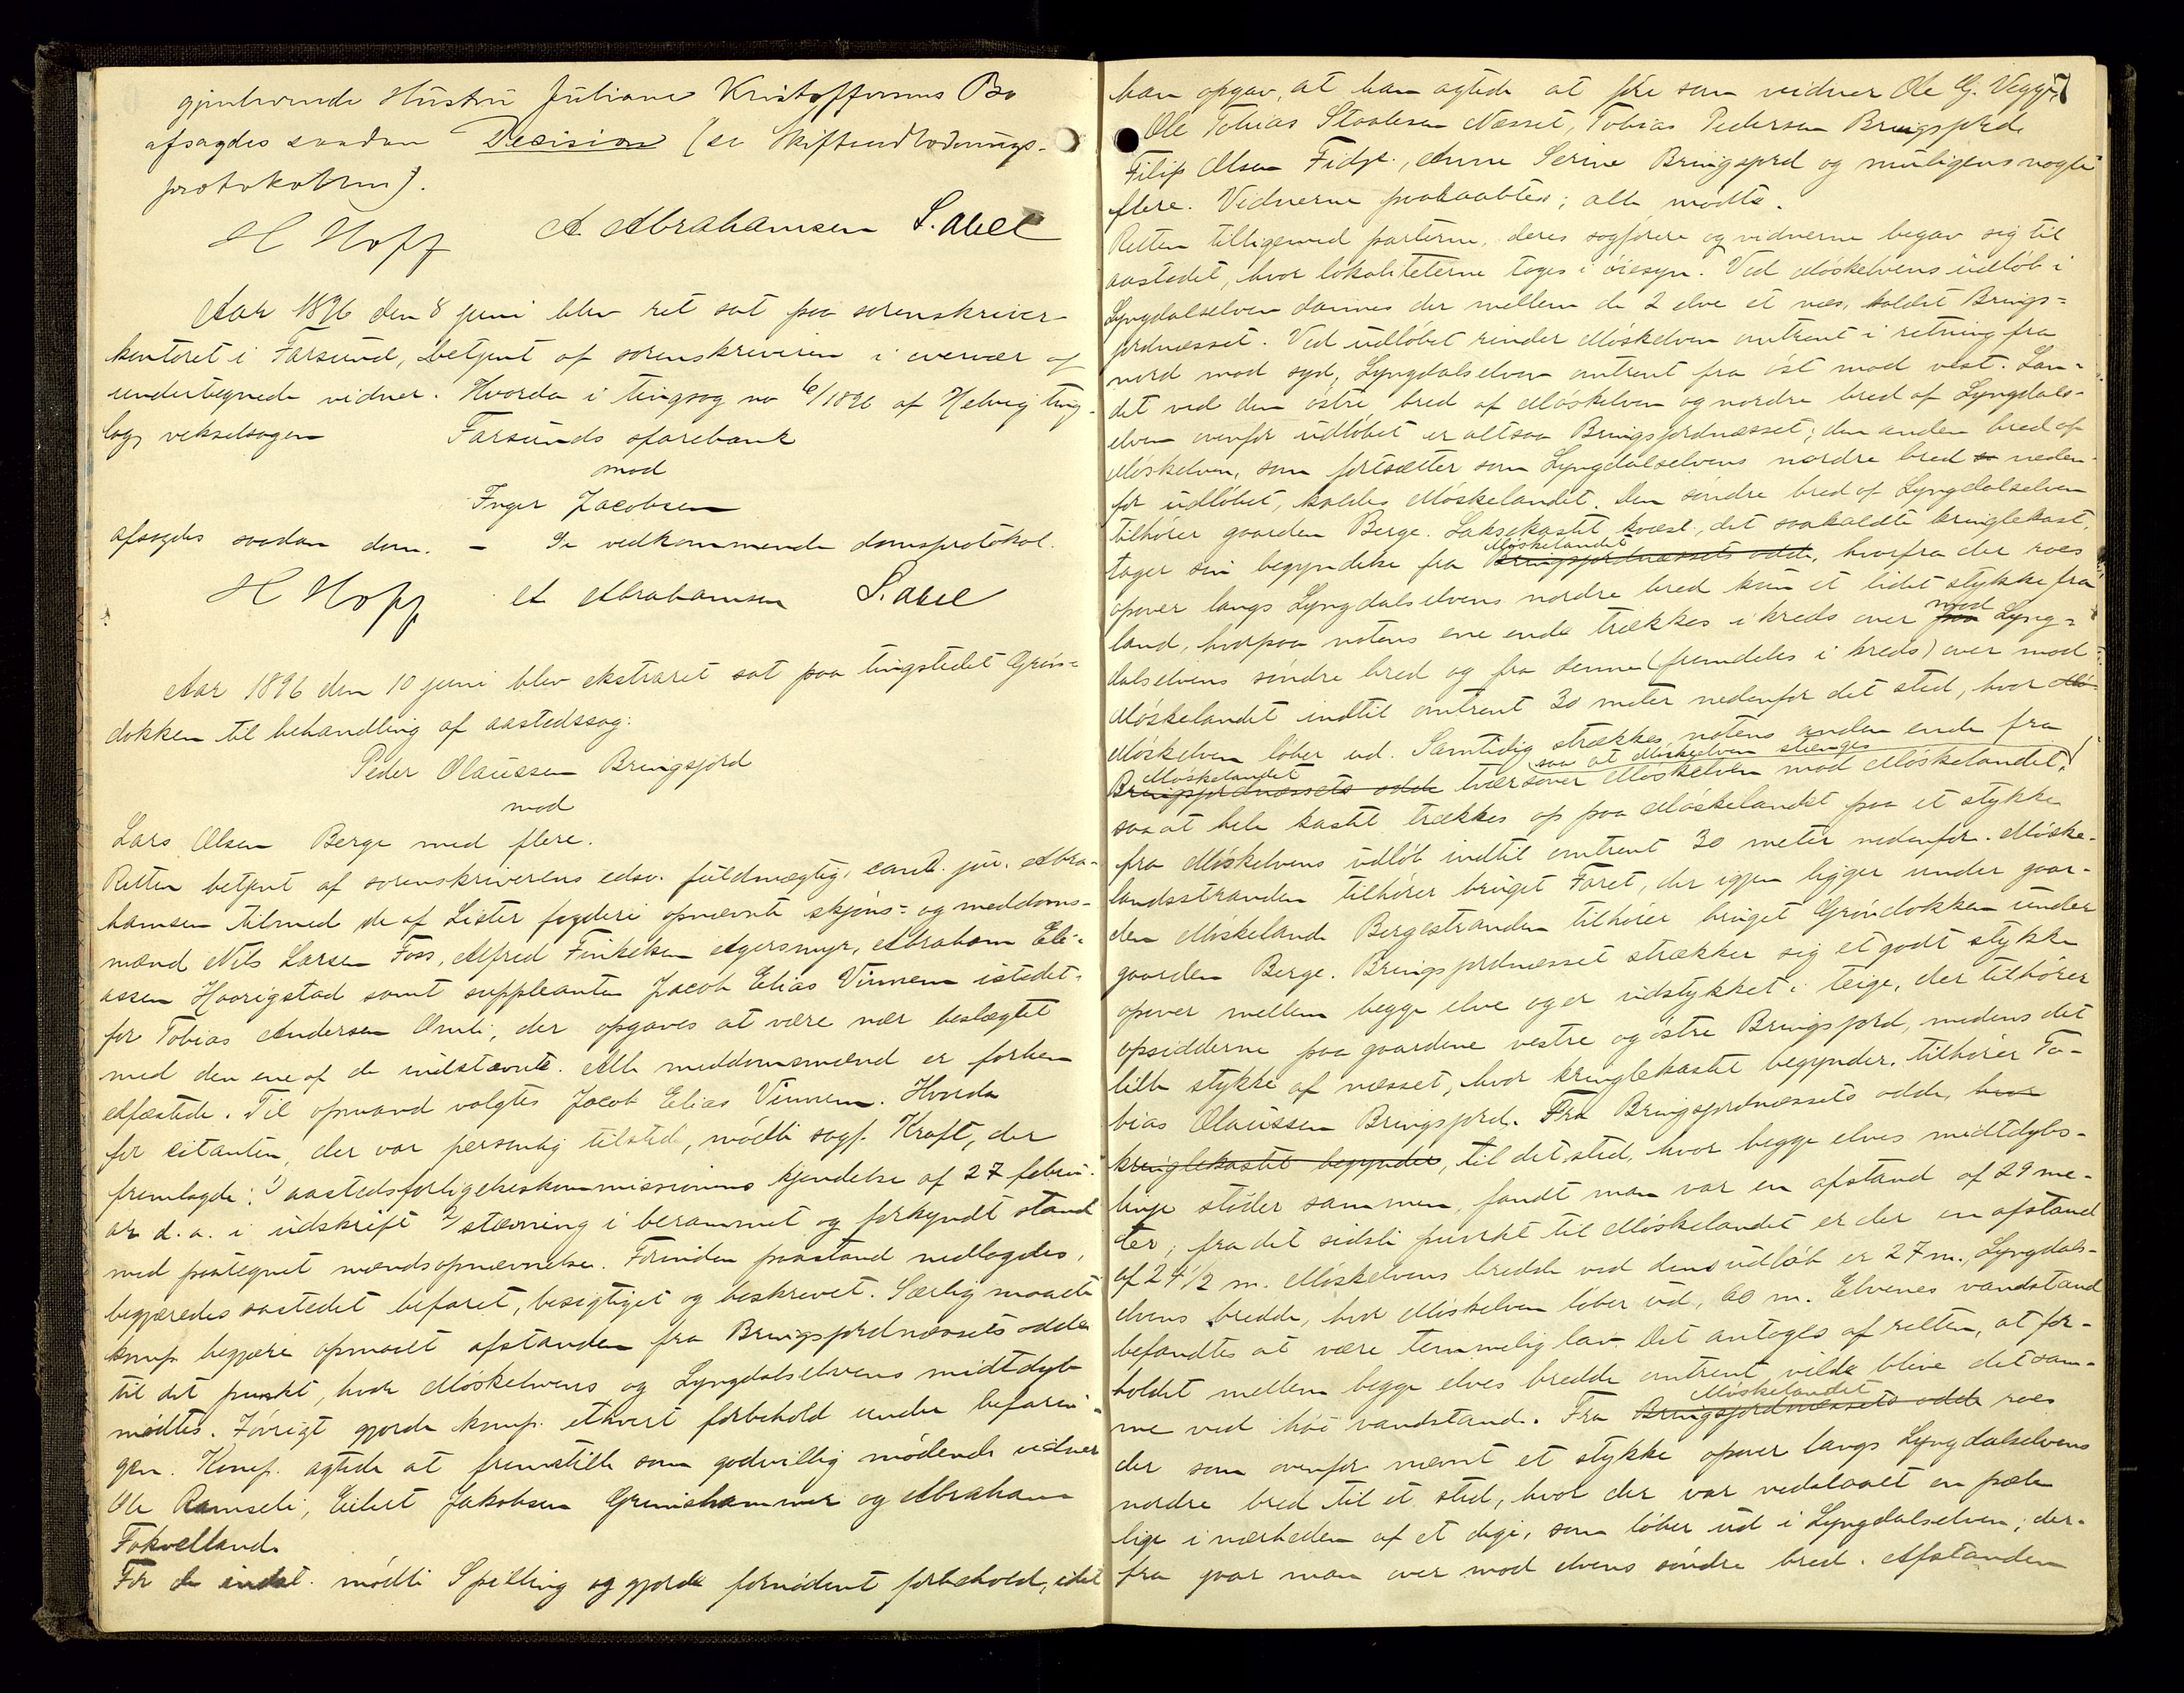 gjenlevende Hustru Juliane Kristoffersens Bo
afsagdes saadan Decision (se Skifteudlodnings-
protokollen).
H Hoff A. Abrahamsen S. Abel
Aar 1896 den 8 juni blev ret sat paa sorenskriver-
kontoret i Farsund, betjent af sorenskriveren i overvær af
undertegnede vidner. Hvorda i tingsag no 6/1896 af Helvig ting-
lag, vekselsagen Farsunds sparebank
mod
Inger Jacobsen
afsagdes saadan dom. - Se vedkommende domsprotokol.
H Hoff A Abrahamsen S. Abel
Aar 1896 den 10 juni blev ekstraret sat paa tingstedet Grøn-
dokken til behandling af aastedssag:
Peder Olaussen Bringsjord
mod
Lars Olsen Berge med flere.
Retten betjent af sorenskriverens edsv. fuldmægtig, cand. jur. Abra-
hamsen tilmed de af Lister fogderi opnævnte skjøns- og meddoms-
mænd Nils Larsen Foss, Alfred Finkelsen Agersmyr, Abraham Eli-
assen Haarigstad samt suppleanten Jacob Elias Vinnem istedet-
for Tobias Andersen Omli, der opgaves at være nær beslægtet
med den ene af de indstævnte. Alle meddomsmænd er forhen
edfæstede. Til opmand valgtes Jacob Elias Vinnem. Hvorda
for citanten, der var personlig tilstede, mødte sagf. Kraft, der
fremlagde: 1) aastedsforligelseskommissionens kjendelse af 27 febru-
ar d. a. i udskrift 2) stævning i berammet og forkyndt stand
med paategnet mændsopnævnelse. Forinden paastand nedlagdes,
begjæredes aastedet befaret, besigtiget og beskrevet. Særlig maatte
komp. begjære opmaalt afstanden fra Bringsjordnæssets odde
til det punkt, hvor Møskelvens og Lyngdalselvens midtdyb
mødtes. Iøvrigt gjorde komp. ethvert forbehold under befarin-
gen. Komp. agtede at fremstille som godvillig mødende vidner
Ole Ramseli, Eilert Jakobsen Grimshammer og Abraham
Fokvelland.
For de indst. mødte Spilling og gjorde fornødent forbehold, idet
han opgav, at han agtede at føre som vidner Ole G. Vegge, 7
Ole Tobias Staalesen Næsset, Tobias Pedersen Bringsjord
Filip Olsen Fidje, Anne Serine Bringsjord og muligens nogle
flere. Vidnerne paaraabtes; alle mødte.
Retten tilligemed parterne, deres sagførere og vidnerne begav sig til
aastedet, hvor lokaliteterne toges i øiesyn. Ved Møskelvens udløb i
Lyngdalselven dannes der mellem de 2 elve et næs, kaldet Brings-
jordnæsset. Ved udløbet rinder Møskelven omtrent i retning fra
nord mod syd, Lyngdalselven omtrent fra øst mod vest. Lan-
det ved den østre bred af Møskelven og nordre bred af Lyngdals-
elven ovenfor udløbet er altsaa Bringsjordnæsset; den anden bred af
Møskelven, som fortsætter som Lyngdalselvens nordre bred neden-
for udløbet, kaldes Møskelandet. Den søndre bred af Lyngdalselven
tilhører gaarden Berge. Laksekastet kvæst., det saakaldte kringlekast,
tager sin begyndelse fra Møskelandet Bringsjordnæssets odde, hvorfra der roes
opover langs Lyngdalselvens nordre bred kun et lidet stykke fra
land, hvorpaa notens ene ende trækkes i kreds over mod Lyng-
dalselvens søndre bred og fra denne (fremdeles i kreds) over mod
Møskelandet indtil omtrent 30 meter nedenfor det sted, hvor
Møskelven løber ud. Samtidig strækkes notens anden ende fra
Møskelandet Bringsjordnæssets odde tværsover Møskelven mod Møskelandet, (saa at Møskelven stænges)
saa at hele kastet trækkes op paa Møskelandet paa et stykke
fra Møskelvens udløb indtil omtrent 30 meter nedenfor. Møske-
landsstranden tilhører bruget Faret, der igjen ligger under gaar-
den Møskeland. Bergestranden tilhører bruget Grøndokken under
gaarden Berge. Bringsjordnæsset strækker sig et godt stykke
opover mellem begge elve og er udstykket i teige, der tilhører
opsidderne paa gaardene vestre og østre Bringsjord, medens det
lille stykke af næsset, hvor kringlekastet begynder, tilhører To-
bias Olaussen Bringsjord. Fra Bringsjordnæssets odde, hvor
kringlekastet begynder, til det sted, hvor begge elves midtdybs-
linje støder sammen, fandt man var en afstand af 29 me-
ter; fra det sidste punkt til Møskelandet er der en afstand
af 24 1/2 m. Møskelvens bredde ved dens udløb er 27 m., Lyngdals-
elvens bredde, hvor Møskelven løber ud, 60 m. Elvenes vandstand
befandtes at være temmelig lav. Det antoges af retten, at for-
holdet mellem begge elves bredde omtrent vilde blive det sam-
me ved høi vandstand. Fra Møskelandet Bringsjordnæssets odde roes
der som ovenfor nævnt et stykke opover langs Lyngdalselvens
nordre bred til et sted, hvor der var nedslaaet en pæle
lige i nærheden af et dige, som løber ud i Lyngdalselven; der-
fra svar man over mod elvens søndre bred. Afstanden